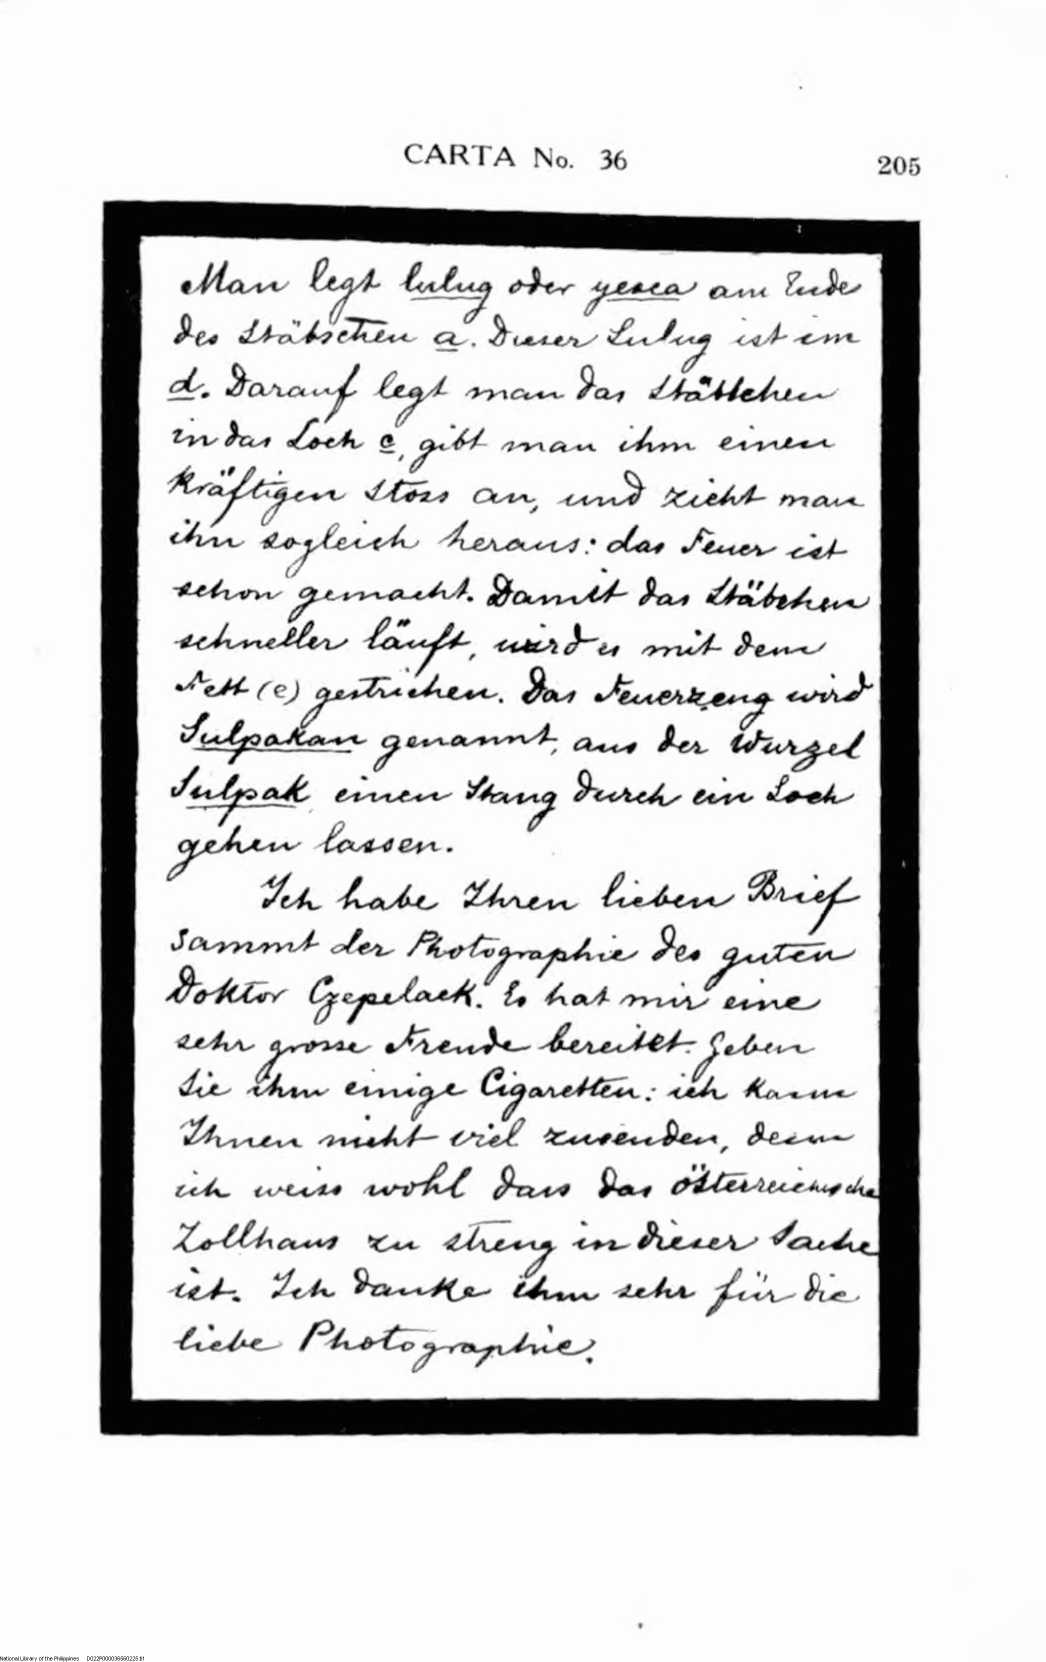 CARTA No. 36
205
Man legt lulug oder yesca am Ende
des Stäbschen a. Dieser Lulug ist im
d. Darauf legt man das Stäbchen
in das Loch c, gibt man ihm einen
kräftigen Stoss an, und zieht man
ihn sogleich heraus: das Feuer ist
schon gemacht. Damit das Stäbchen
schneller läuft, wird es mit dem
Fett (e) gestrichen. Das Feuerzeug wird
Sulpakan genannt, aus der Wurzel
Sulpak einen Stang durch ein Loch
gehen lassen.
Ich habe Ihren lieben Brief
sammt der Photographie des guten
Doktor Czepelack. Es hat mir eine
sehr grosse Freude bereitet. Geben
Sie ihm einige Cigaretten: ich kann
Ihnen nicht viel zusenden, denn
ich weiss wohl dass das österreichische
Zollhaus zu streng in dieser Sache
ist. Ich danke ihm sehr für die
liebe Photographie.
National Library of the Philippines